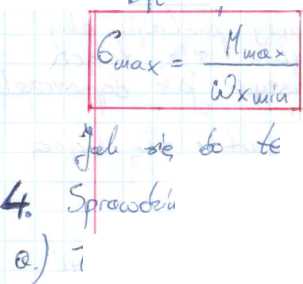 σmax = Mmax / Wx min
Jak się to te
4. Sprawdzin
a.)